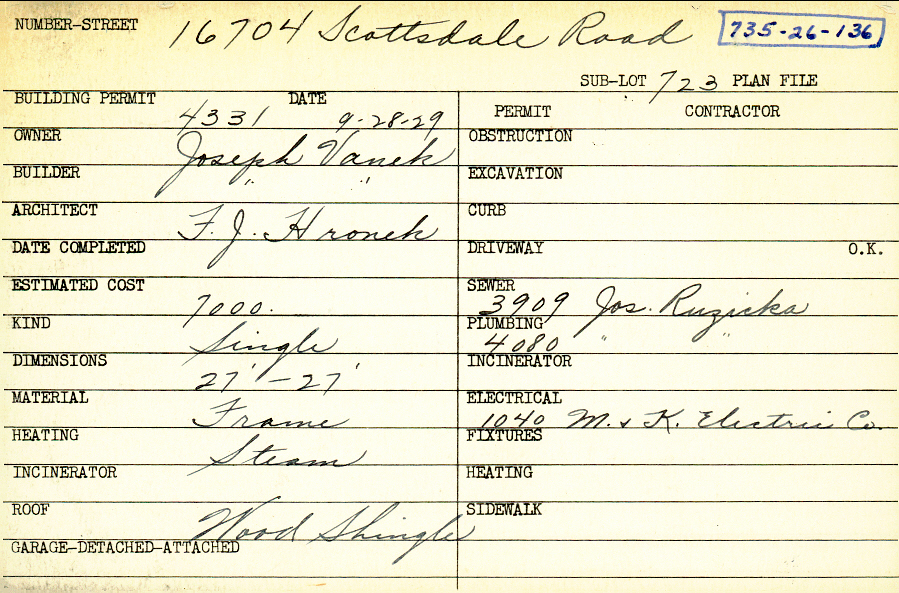 NUMBER-STREET 16704 Scottsdale Road 735-26-136
SUB-LOT 723 PLAN FILE
BUILDING PERMIT 4331 DATE 9-28-29
OWNER Joseph Vanek
BUILDER " "
ARCHITECT F. J. Hronek
DATE COMPLETED
ESTIMATED COST 7000.
KIND Single
DIMENSIONS 27' - 27'
MATERIAL Frame
HEATING Steam
INCINERATOR
ROOF Wood Shingle
GARAGE-DETACHED-ATTACHED
PERMIT CONTRACTOR
OBSTRUCTION
EXCAVATION
CURB
DRIVEWAY O.K.
SEWER 3909 Jos. Ruzicka
PLUMBING 4080 " "
INCINERATOR
ELECTRICAL 1040 M. & K. Electric Co.
FIXTURES
HEATING
SIDEWALK